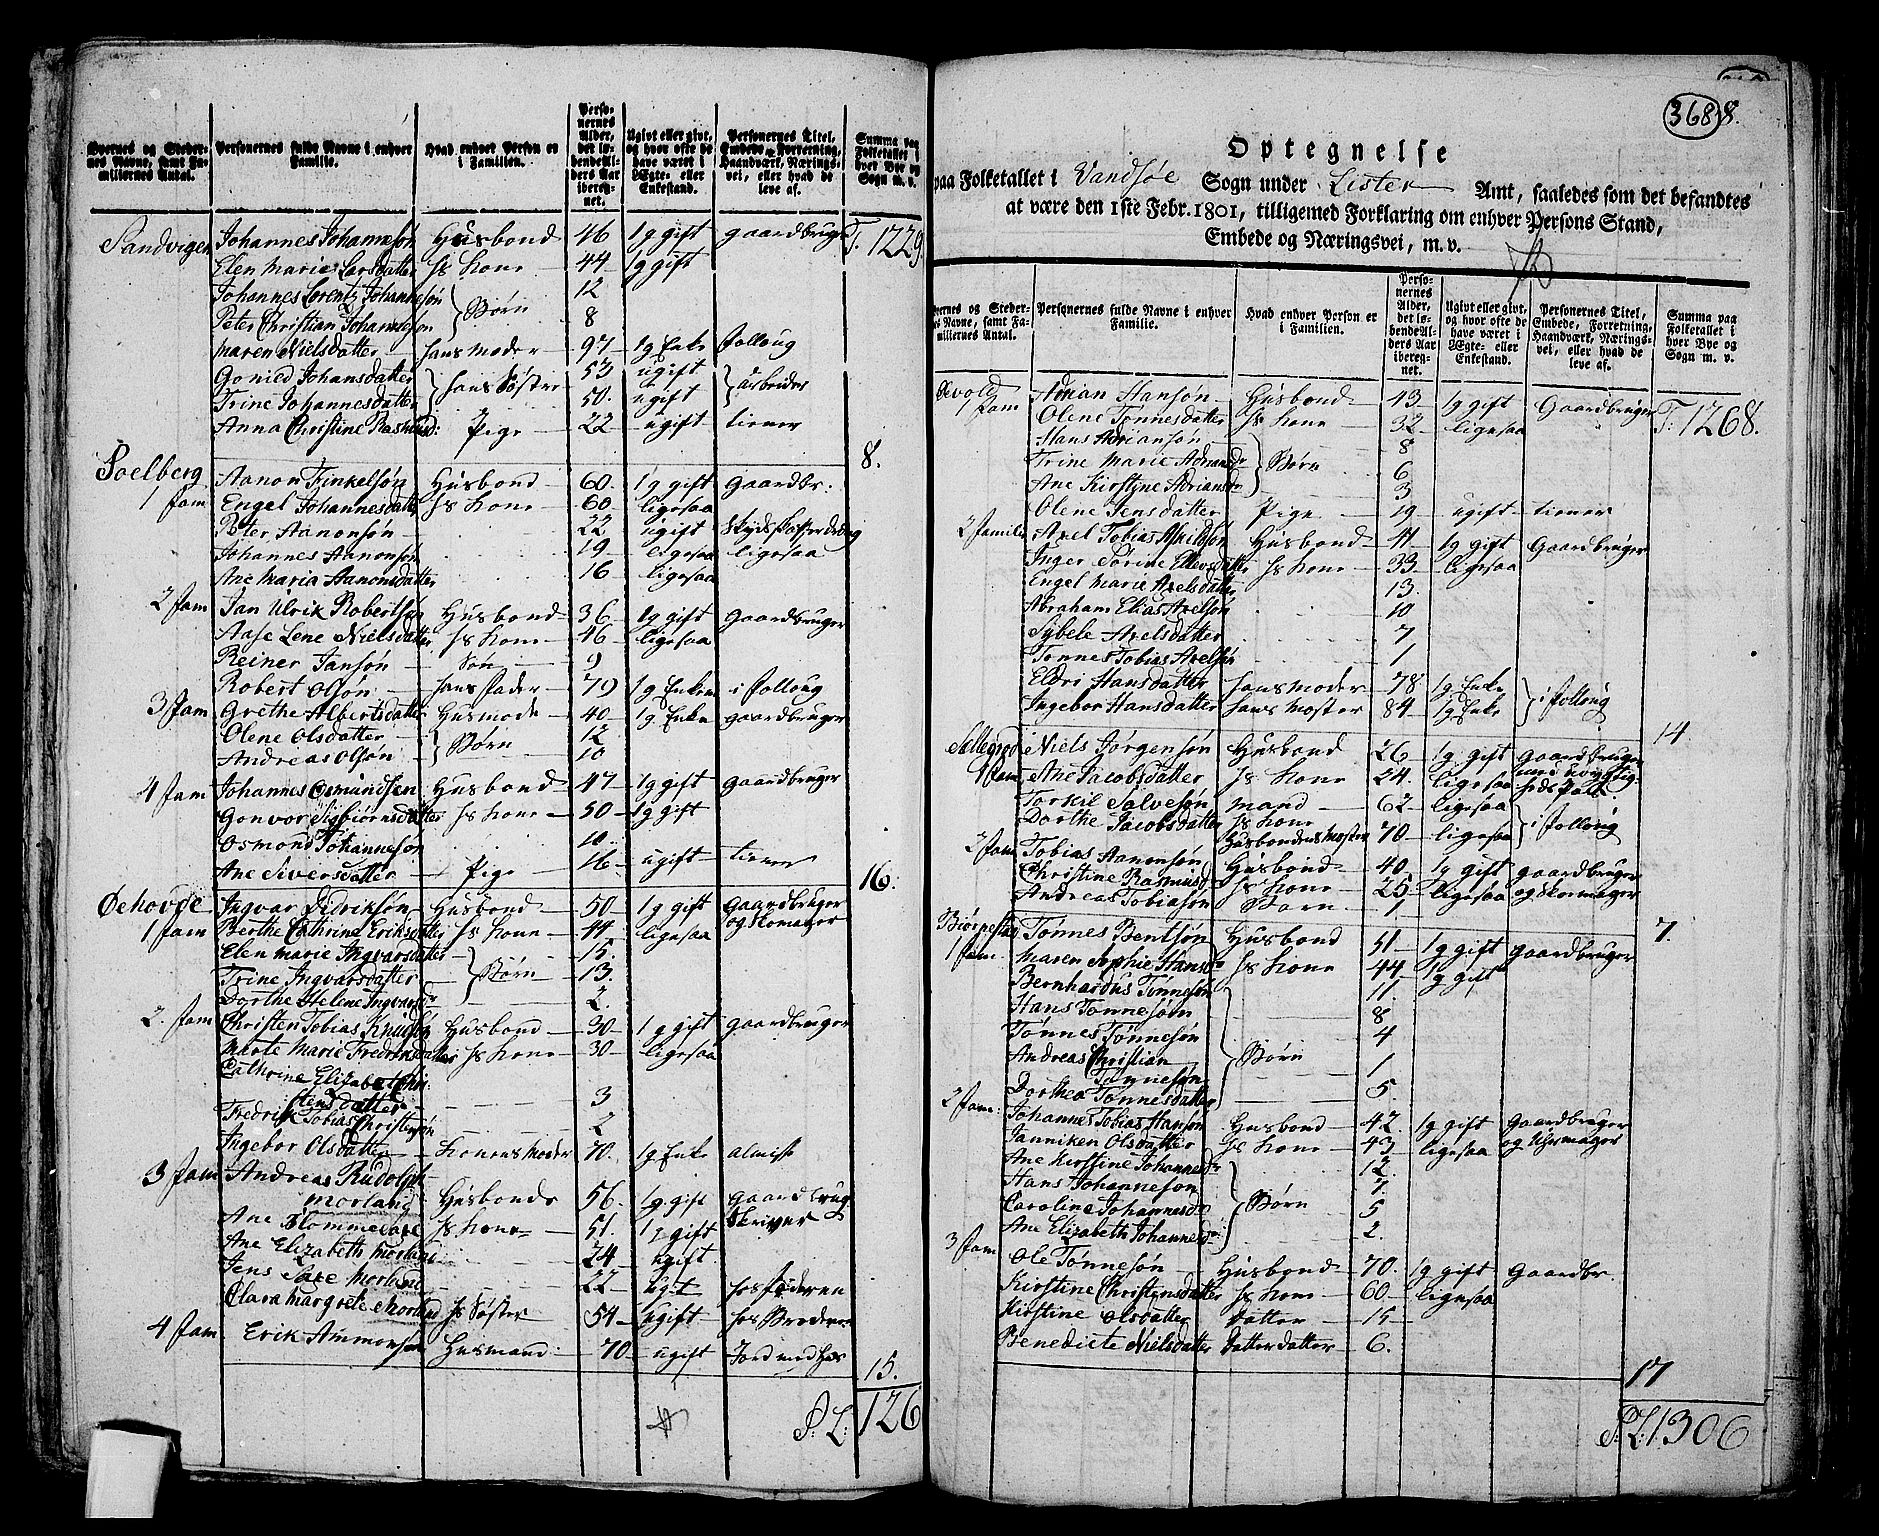 Byernes og Steder-
nes Navne, samt Fa-
miliernes Antal.
Personernes fulde Navne i enhver
Familie.
Hvad enhver Person er
i Familien.
Perso-
nernes
Alder,
det lø-
bende Al-
ders Aar
ibereg-
net.
Ugivt eller givt,
og hvor ofte de
have været i
Ægte- eller
Enkestand.
Personernes Titel,
Embede, Forretning,
Haandværk, Nærings-
vei, eller hvad de
leve af.
Summa paa
Folketallet i
hver Bye og
Sogn m. v.
Sandvigen Johannes Johannesøn Husbond 46 1 g gift gaardbruger T. 1229
Elen Maria Larsdatter hs Kone 44 1 g gift
Johannes Lorentz Johannesøn } Børn 12
Peter Christian Johannesøn 8
Maren Nielsdatter hans Moder 97 1 g Enke Folloug
Gonild Johansdatter } hans Søster 53 ugift } arbeider
Trine Johannesdatter 50 ugift
Anna Christine Rasmusd: Pige 22 ugift tiener
8.
Soelberg Aanon Finkelsøn Husbond 60 1 g gift Gaardbr:
1 fam Engel Johannesdatter hs Kone 60 ligesaa
Peter Aanonsøn 22 ugift
Johannes Aanonsøn 19 ligesaa ligesaa
Ane Maria Aanonsdatter 16 ligesaa
2 fam Jan Ulrik Robertsøn Husbond 36 1 g gift Gaardbruger
Aase Lene Nielsdatter hs Kone 46 ligesaa
Reiner Jansøn Søn 9
Robert Olsøn hans Fader 79 1 g Enkem i Folloug
3 fam Grethe Albertsdatter Husmoder 40 1 g Enke gaardbruger
Olene Olsdatter } Børn 12
Andreas Olsøn 10
4 fam Johannes Osmundsen Husbond 47 1 g gift gaardbruger
Gonvor Sigbiørnsdatter hs Kone 50 1 g gift
Osmond Johannesøn 10.
Ane Siversdatter Pige 16 ugift tiener
16.
Øehovde Ingvar Didriksøn Husbond 50 1 g gift gaardbruger
1 fam Berthe Cathrine Eriksdatter hs Kone 44 ligesaa og skomager
Elen Marie Ingvarsdatter } Børn 15.
Trine Ingvarsdatter 13.
Dorthe Helene Ingvarsdr 2.
2. fam Christen Tobias Knudsøn Husbond 30 1 g gift gaardbruger
Marte Marie Fredriksdatter hs Kone 30 ligesaa
Cathrine Elizabet Chri-
stensdatter 3
Fredrik Tobias Christensøn 2
Ingebor Olsdatter Konens Moder 70. 1 g Enke almisse
3 fam Andreas Rudolph
Morland Husbonde 56. 1 g gift Gaardbrug
Ane hs Kone 51. 1 g gift Skriver
Ane Elizabeth Morland 24 ugift
Jens Morland 22 ugt hos Faderen
Clara Margrete Morland hs Søster 54 ugift hos Broderen
4 fam Erik Ammonsøn Husmand 70 ugift Jord med hus
15.
126
368
Optegnelse
paa Folketallet i Vandsøe Sogn under Lister Amt, saaledes som det befandtes
at være den 1ste Febr. 1801, tilligemed Forklaring om enhver Persons Stand,
Embede og Næringsvei, m. v.
Byernes og Steder-
nes Navne, samt Fa-
miliernes Antal.
Personernes fulde Navne i enhver
Familie.
Hvad enhver Person er
i Familien.
Perso-
nernes
Alder,
det lø-
bende Al-
ders Aar
ibereg-
net.
Ugivt eller givt,
og hvor ofte de
have været i
Ægte- eller
Enkestand.
Personernes Titel,
Embede, Forretning,
Haandværk, Nærings-
vei, eller hvad de
leve af.
Summa paa
Folketallet i
hver Bye og
Sogn m. v.
Adrian Hansøn Husbond 43 1 g gift Gaardbruger T: 1268.
1 fam Olene Tønnesdatter hs Kone 32 ligesaa
Hans Adriansøn } Børn 8
Trine Marie Adriansdr 6
Ane Kirstine Adriansdr 3
Olene Jensdatter Pige 19 ugift tiener
2 familie Axel Tobias Husbond 41 1 g gift Gaardbruger
Inger Torine Ellevsdatter hs Kone 33 ligesaa
Engel Marie Axelsdatter 13.
Abraham Elias Axelsøn 10
Sybele Axelsdatter 7
Tønnes Tobias Axelsøn 1
Eldri Hansdatter hans Moder 78 1 g Enke } i Folloug
Ingebor Hansdatter hans Moster 84 1 g Enke
14
Niels Jørgensøn Husbond 26 1 g gift gaardbruger
1 fam Ane Jacobsdatter hs Kone 24. ligesaa
Torkil Salvesøn Mand 62 ligesaa } i Folloug
Dorthe Jacobsdatter hs Kone
Husbondens Moster 70 ligesaa
2 fam Tobias Aanonsøn Husbond 40 1 g gift gaardbruger
Christine Rasmusd hs Kone 25 ligesaa og skomager
Andreas Tobiasøn Barn 1
7.
Biørnestad Tønnes Bentsøn Husbond 51 1 g gift gaardbruger
1 fam Maren Sophie Hansdr hs Kone 44 1 g gift
Bernhardus Tønnesøn 11.
Hans Tønnesøn 8
Tønnes Tønnesøn 4
Andreas Christian } Børn
Tønnesøn 1
Dorthea Tønnesdatter 5.
2 fam: Johannes Tobias Hansøn Husbond 42 1 g gift gaardbruger
Janniken Olsdatter hs Kone 43 ligesaa og Uhrmager
Ane Kirstine Johannesdr } Børn 12
Hans Johannesøn 7.
Caroline Johannesdr 5
Ane Elizabeth Johannesdr 2.
3 fam Ole Tønnesøn Husbond 70. 1 g gift Gaardbr.
Kirstine Christensdatter hs Kone 60 ligesaa
Kirstine Olsdatter Datter 15
Benedicte Nielsdatter Datterdatter 6.
17
1306